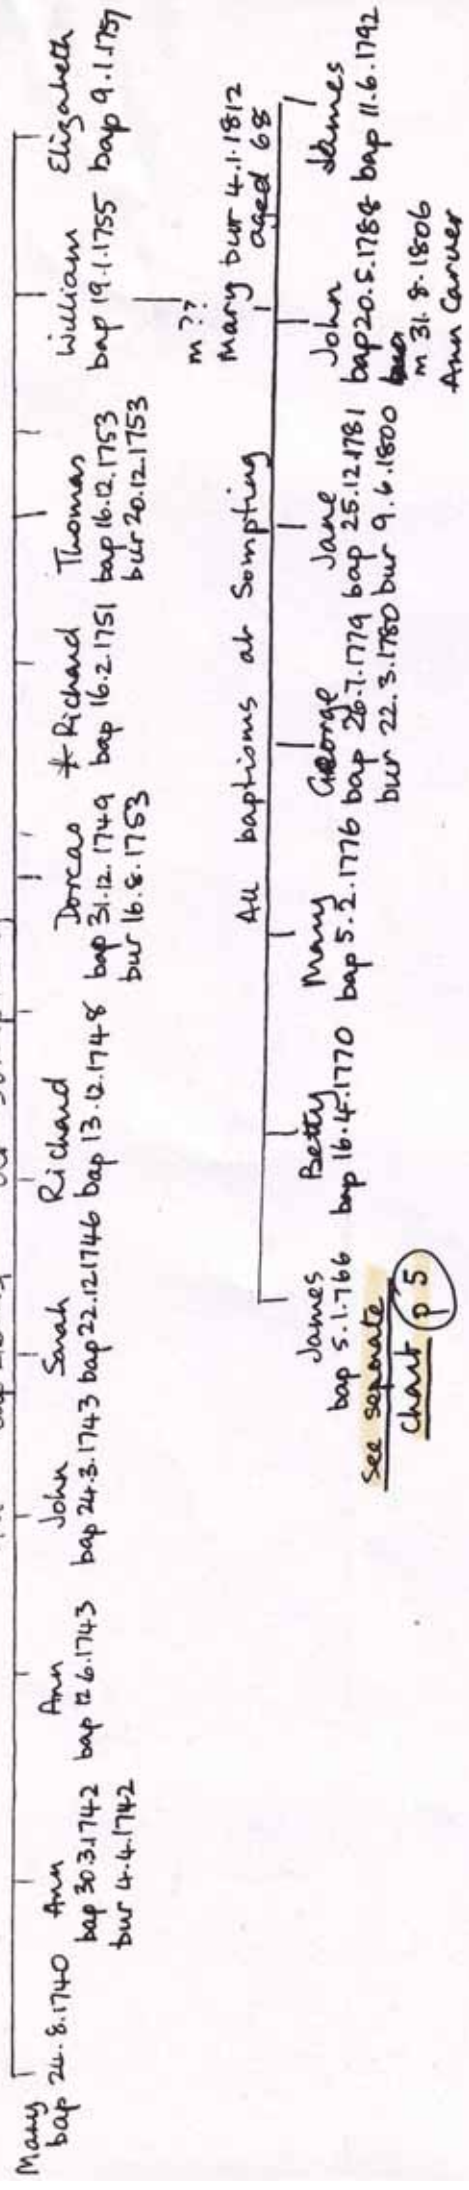 Mary
bap 24.8.1740
Ann
bap 30.3.1742
bur 4.4.1742
Ann
bap 12.6.1743
John
bap 24.3.1743
Sarah
bap 22.12.1746
Richard
bap 13.12.1748
Dorcas
bap 31.12.1749
bur 16.8.1753
* Richard
bap 16.2.1751
Thomas
bap 16.12.1753
bur 20.12.1753
William
bap 19.1.1755
Elizabeth
bap 9.1.1757
m ??
Mary bur 4.1.1812
aged 68
All baptisms at Sompting
James
bap 5.1.1766
See separate
chart p 5
Betty
bap 16.4.1770
Mary
bap 5.2.1776
George
bap 26.7.1779
bur 22.3.1780
Jane
bap 25.12.1781
bur 9.6.1800
John
bap 20.5.1788
m 31.8.1806
Ann Carver
James
bap 11.6.1792